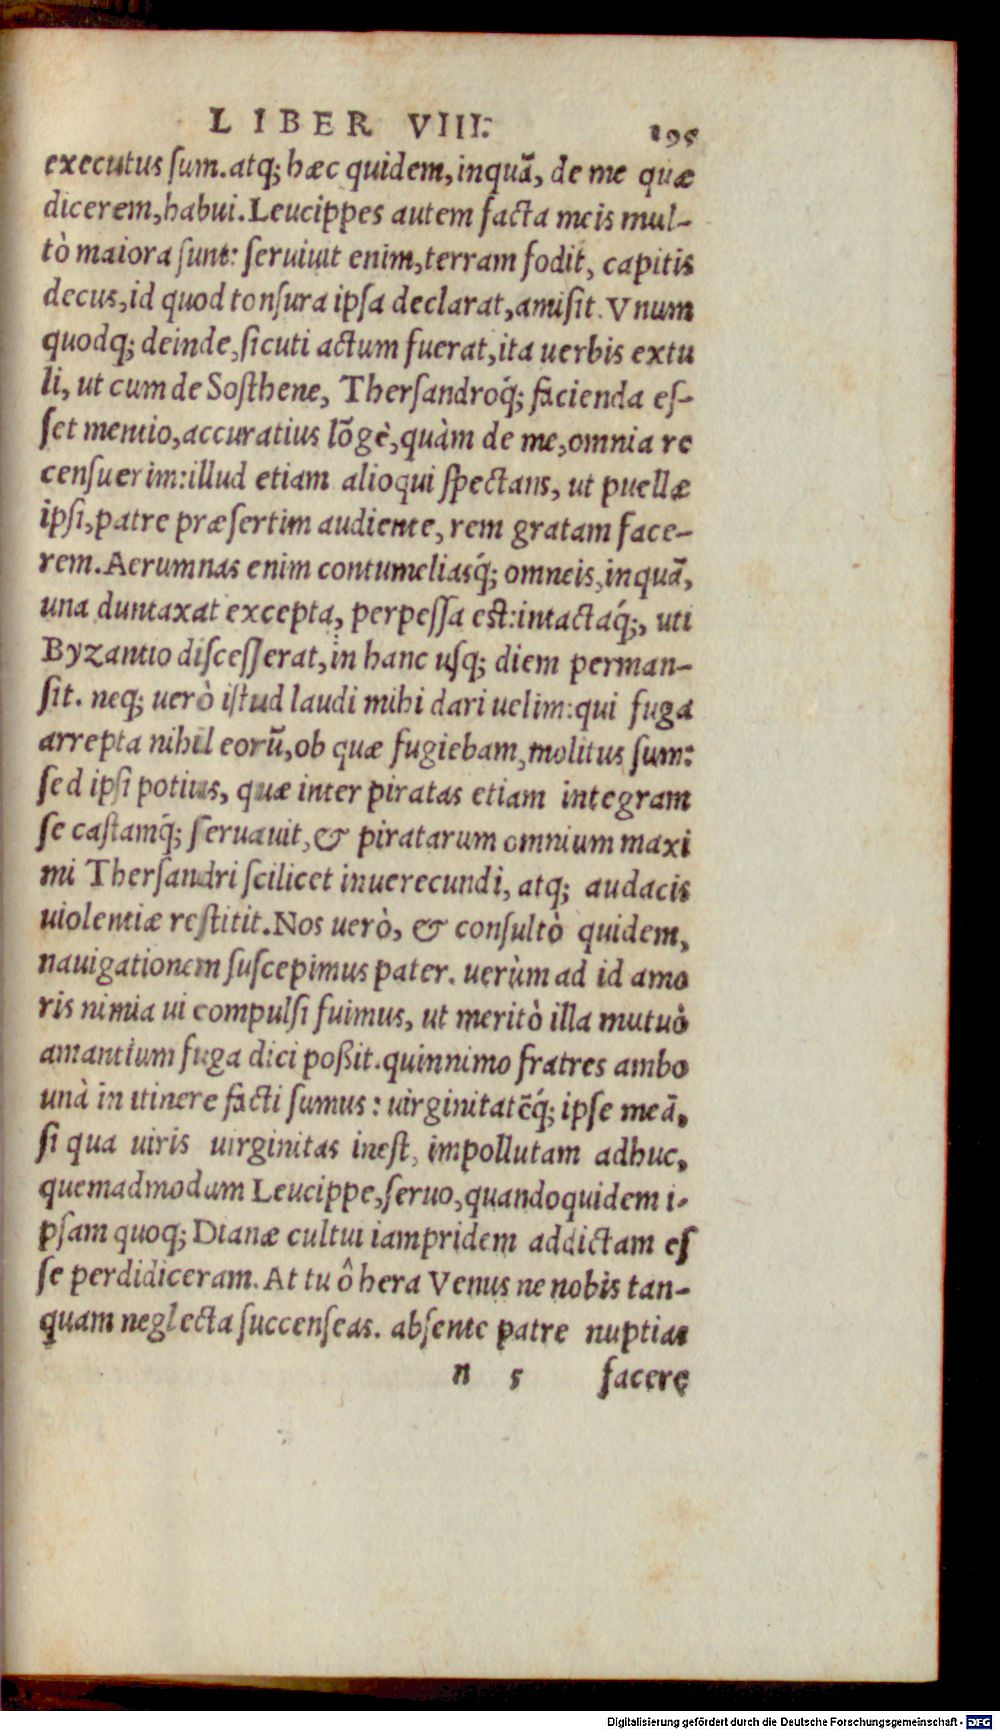 LIBER VIII.
195
executus sum. atq; hæc quidem, inquã, de me quæ
dicerem, habui. Leucippes autem facta meis mul-
tò maiora sunt: seruiuit enim, terram fodit, capitis
decus, id quod tonsura ipsa declarat, amisit. Vnum
quodq; deinde, sicuti actum fuerat, ita uerbis extu
li, ut cum de Sosthene, Thersandroq́; facienda es-
set mentio, accuratius lõgè, quàm de me, omnia re
censuerim: illud etiam alioqui spectans, ut puellæ
ipsi, patre præsertim audiente, rem gratam face-
rem. Aerumnas enim contumeliasq́; omneis, inquã,
una duntaxat excepta, perpessa est: intactaq́;, uti
Byzantio discesserat, in hanc usq; diem perman-
sit. neq; uerò istud laudi mihi dari uelim: qui fuga
arrepta nihil eorũ, ob quæ fugiebam, molitus sum:
sed ipsi potius, quæ inter piratas etiam integram
se castamq́; seruauit, & piratarum omnium maxi
mi Thersandri scilicet inuerecundi, atq; audacis
uiolentiæ restitit. Nos uerò, & consultò quidem,
nauigationem suscepimus pater. uerùm ad id amo
ris nimia ui compulsi fuimus, ut meritò illa mutuò
amantium fuga dici poßit. quinnimo fratres ambo
unà in itinere facti sumus: uirginitatẽq́; ipse meã,
si qua uiris uirginitas inest, impollutam adhuc,
quemadmodum Leucippe, seruo, quandoquidem i-
psam quoq; Dianæ cultui iampridem addictam es
se perdidiceram. At tu ô hera Venus ne nobis tan-
quam neglecta succenseas. absente patre nuptias
n 5 facere
Digitalisierung gefördert durch die Deutsche Forschungsgemeinschaft - DFG